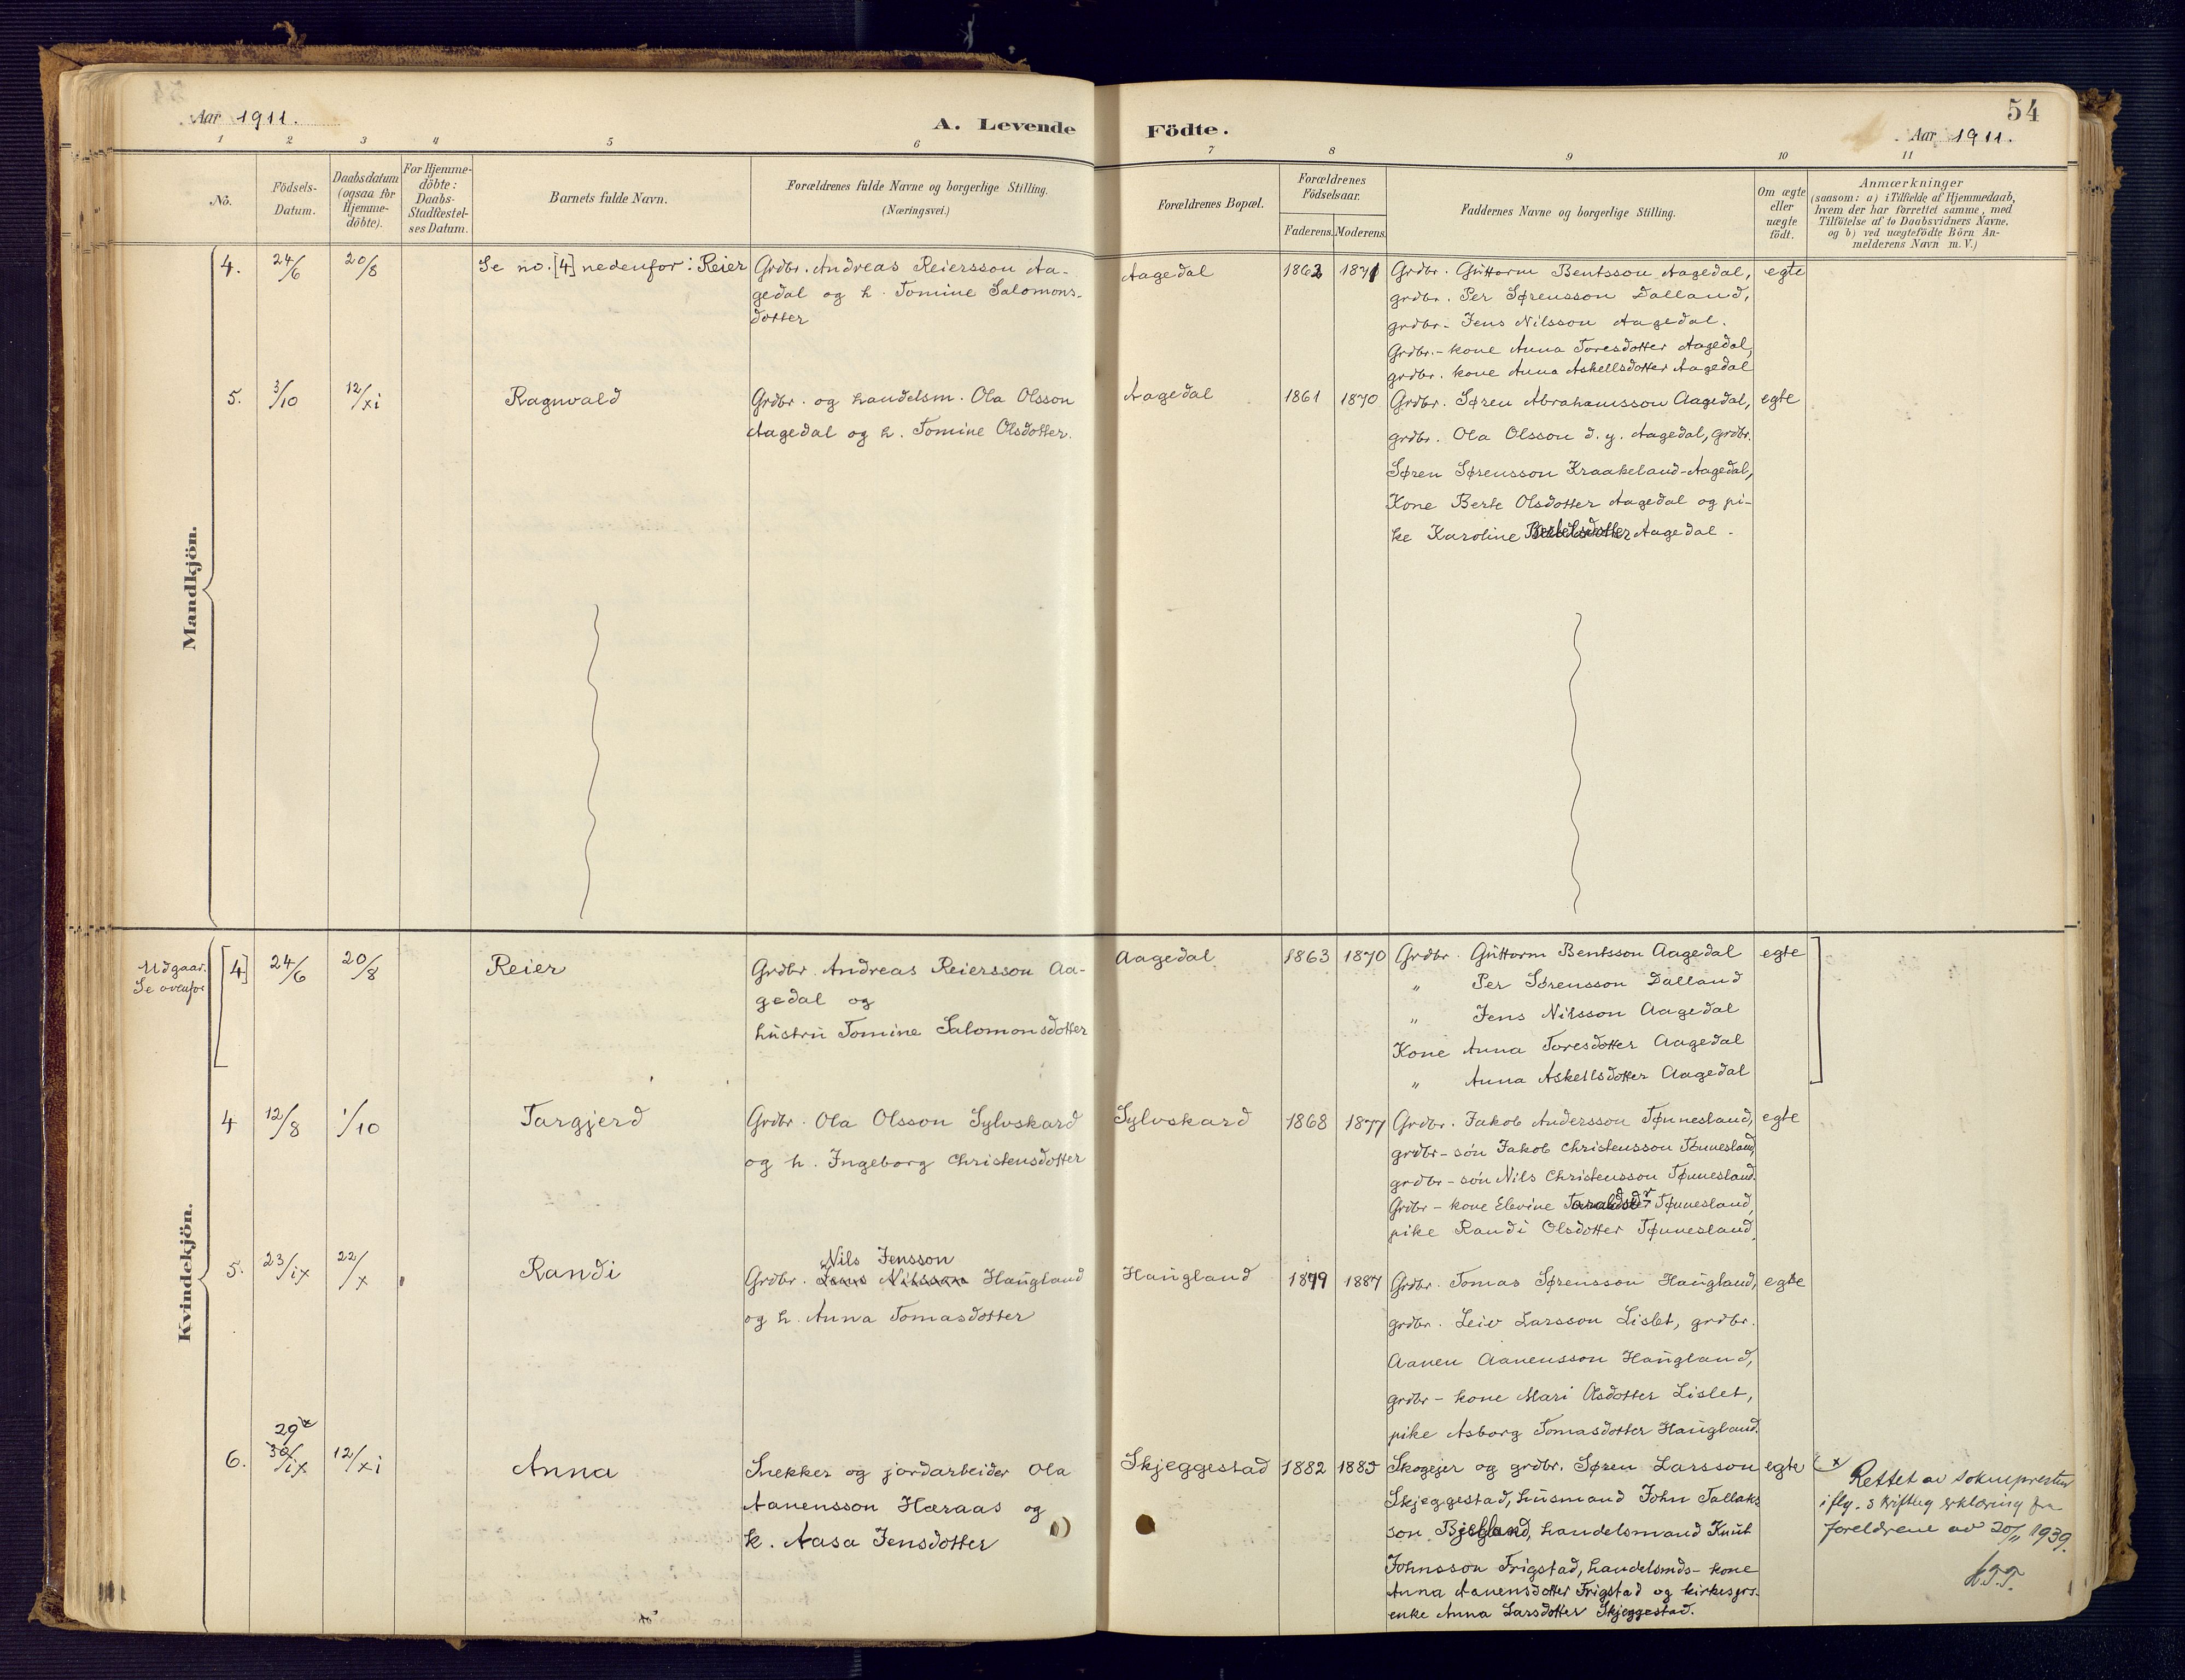 54
Aar 1911.
A. Levende Födte.
Aar 1911.
1 2 3 4 5 6 7 8 9 10 11
No.
Födsels-
Datum.
Daabsdatum
(ogsaa for
Hjemme-
döbte).
For Hjemme-
döbte:
Daabs-
Stadfæstel-
ses Datum.
Barnets fulde Navn.
Forældrenes fulde Navne og borgerlige Stilling.
(Næringsvei.)
Forældrenes Bopæl.
Forældrenes
Födselsaar.
Faderens. Moderens.
Faddernes Navne og borgerlige Stilling.
Om ægte
eller
uægte
födt.
Anmærkninger
(saasom: a) i Tilfælde af Hjemmedaab,
hvem der har forrettet samme, med
Tilföielse af to Daabsvidners Navne,
og b) ved uægtefödte Börn An-
melderens Navn m. V.)
Mandkjön.
4. 24/6 20/8 Se no. [4] nedenfor: Reier
Grdbr. Andreas Reiersson Aa-
gedal og h. Tomine Salomons-
dotter
Aagedal 1863 1871
Grdbr. Guttorm Bentsson Aagedal,
grdbr. Per Sørensson Dalland,
grdbr. Jens Nilsson Aagedal.
Grdbr.-kone Anna Toresdotter Aagedal,
grdbr. kone Anna Askellsdotter Aagedal
egte
5. 3/10 12/xi Ragnvald
Grdbr. og handelsm. Ola Olsson
Aagedal og h. Tomine Olsdotter.
Aagedal 1861 1870
Grdbr. Søren Abrahamsson Aagedal,
grdbr. Ola Olsson d. y. Aagedal, grdbr.
Søren Sørensson Kraakeland-Aagedal,
Kone Berte Olsdotter Aagedal og pi-
ke Karoline Bertelsdotter Aagedal.
egte
Kvindekjön.
Udgaar.
Se ovenfor
[4] 24/6 20/8 Reier
Grdbr. Andreas Reiersson Aa-
gedal og
hustru Tomine Salomonsdotter
Aagedal 1863 1870
Grdbr. Guttorm Bentsson Aagedal
„ Per Sørensson Dalland
„ Jens Nilsson Aagedal
Kone Anna Toresdotter Aagedal
„ Anna Askellsdotter Aagedal
egte ]
4 12/8 1/10 Targjerd
Grdbr. Ola Olsson Sylvskard
og h. Ingeborg Christensdotter
Sylvskard 1868 1877
Grdbr. Jakob Andersson Tønnesland,
grdbr-søn Jakob Christensson Tønnesland,
grdbr-søn Nils Christensson Tønnesland.
Grdbr-kone Elevine Tønnesland,
pike Randi Olsdotter Tønnesland.
egte
5. 23/ix 22/x Randi
Nils Jensson
Grdbr. Jens Nilsson Haugland
og h. Anna Tomasdotter
Haugland 1879 1887
Grdbr. Tomas Sørensson Haugland,
grdbr. Leiv Larsson Lislet, grdbr.
Aanen Aanensson Haugland,
grdbr-kone Mari Olsdotter Lislet,
pike Asborg Tomasdotter Haugland.
egte
29 x
6. 30/ix 12/xi Anna
Snekker og jordarbeider Ola
Aanensson Hæraas og
k. Aasa Jensdotter
Skjeggestad 1882 1885
Skogejer og grdbr. Søren Larsson
Skjeggestad, husmand John Tallaks
son Bjelland, handelsmand Knut
Johnsson Frigstad, handelsmds-kone
Anna Aanensdotter Frigstad og kirkesgrs.
enke Anna Larsdotter Skjeggestad.
egte
x Rettet av soknepresten
iflg. skriftleg erklæring fra
foreldrene av 20/11 1939.